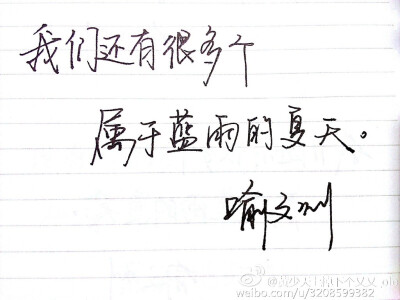 我们还有很多个
属于蓝雨的夏天。
喻文州
weibo.com/u/3208599382